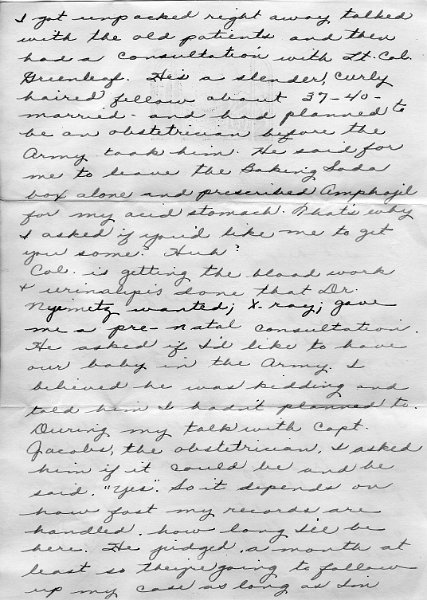 I got unpacked right away, talked
with the old patients and then
had a consultation with Lt. Col.
Greenleaf. He's a slender, curly
haired fellow about 37-40-
married - and had planned to
be an obstetrician before the
Army took him. He said for
me to leave the Baking Soda
box alone and prescribed Amphojil
for my acid stomach. That's why
I asked if you'd like me to get
you some. Huh?
Col. is getting the blood work
& urinalysis done that Dr.
wanted; X-ray; gave
me a pre-natal consultation.
He asked if I'd like to have
our baby in the Army. I
believed he was kidding and
told him I hadn't planned to.
During my talk with Capt.
Jacobs, the obstetrician, I asked
him if it could be and he
said, "Yes". So it depends on
how fast my records are
handled, how long I'll be
here. He judged, a month at
least so they're going to follow
up my case as long as I'm